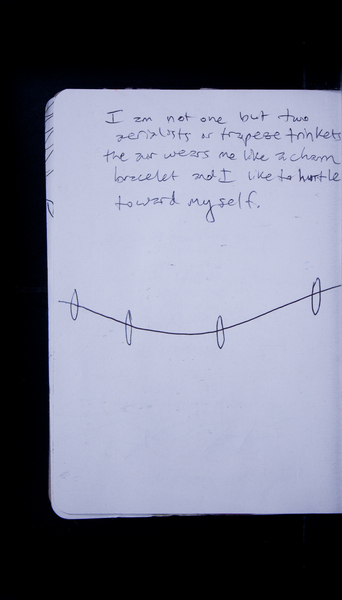 I am not one but two
aerialists or trapeze trinkets
the air wears me like a charm
bracelet and I like to hurtle
toward myself.